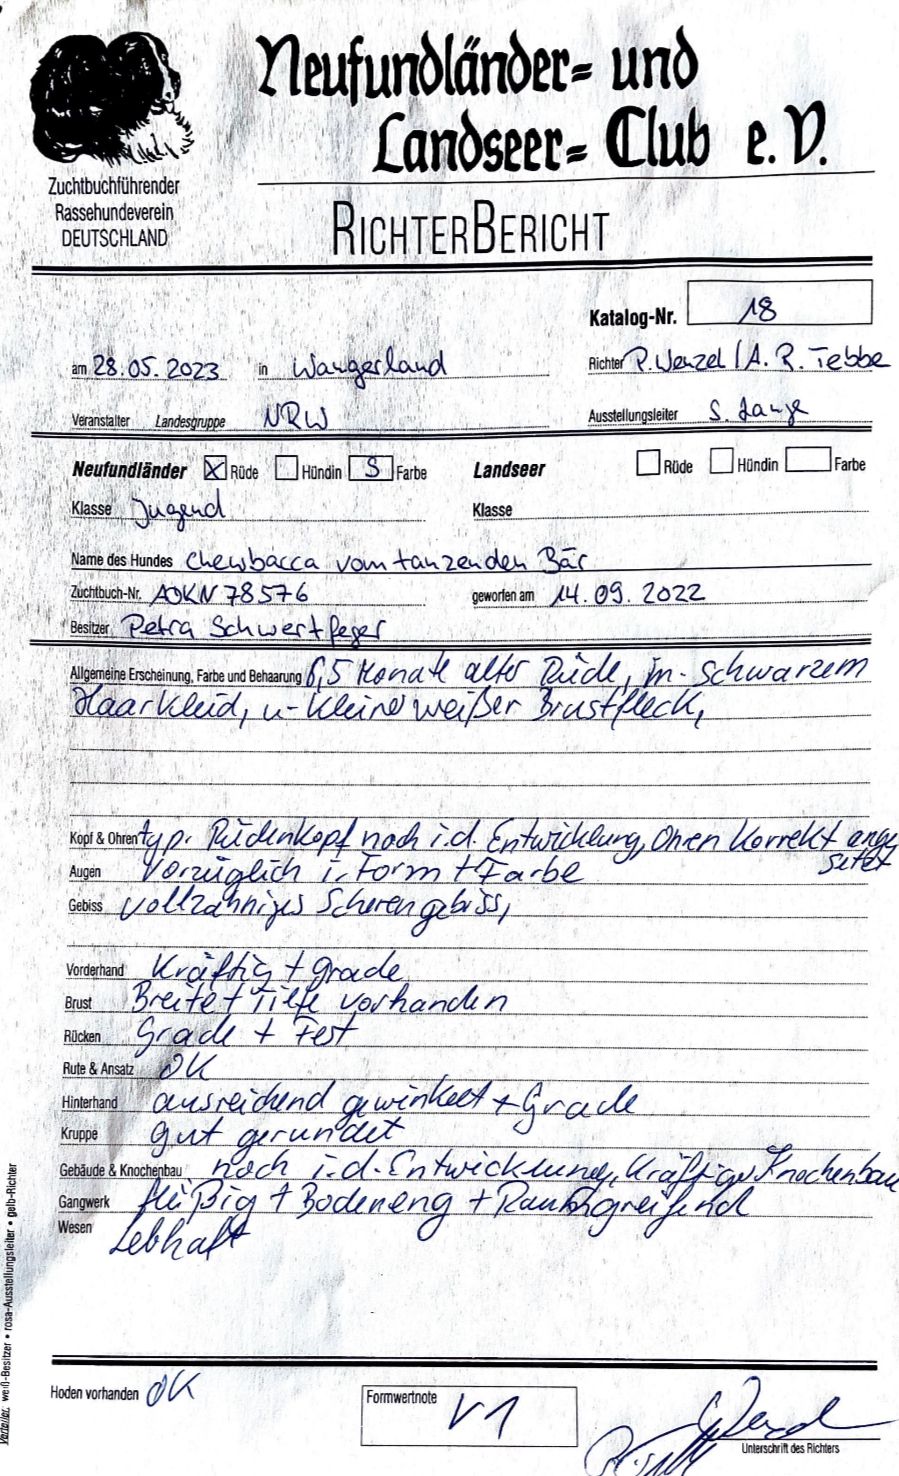 Neufundländer- und
Landseer- Club e. V.
Zuchtbuchführender
Rassehundeverein
DEUTSCHLAND
RICHTERBERICHT
Katalog-Nr. 18
am 28.05.2023 in Wangerland Richter P. Wenzel / A. R. Tebbe
Veranstalter Landesgruppe NRW Ausstellungsleiter S. Lange
Neufundländer X Rüde Hündin S Farbe Landseer Rüde Hündin Farbe
Klasse Jugend Klasse
Name des Hundes Chewbacca vom tanzenden Bär
Zuchtbuch-Nr. AOKN 78576 geworfen am 14.09.2022
Besitzer Petra Schwertfeger
Allgemeine Erscheinung, Farbe und Behaarung 6,5 Monate alter Rüde, m. schwarzem
Haarkleid, u. kleiner weißer Brustfleck,
Kopf & Ohren typ. Rüdenkopf noch i.d. Entwicklung, Ohren korrekt ange
setzt
Augen Vorzüglich i. Form + Farbe
Gebiss vollzahniges Scherengebiss,
Vorderhand Kräftig + grade
Brust Breite + Tiefe vorhanden
Rücken Grade + Fest
Rute & Ansatz OK
Hinterhand ausreichend gewinkelt + Grade
Kruppe gut gerundet
Gebäude & Knochenbau noch i.d. Entwicklung, kräftiger Knochenbau
Gangwerk fleißig + Bodeneng + Raumgreifend
Wesen Lebhaft
Hoden vorhanden OK
Formwertnote V1
Unterschrift des Richters
Verteiler: weiß-Besitzer • rosa-Ausstellungsleiter • gelb-Richter